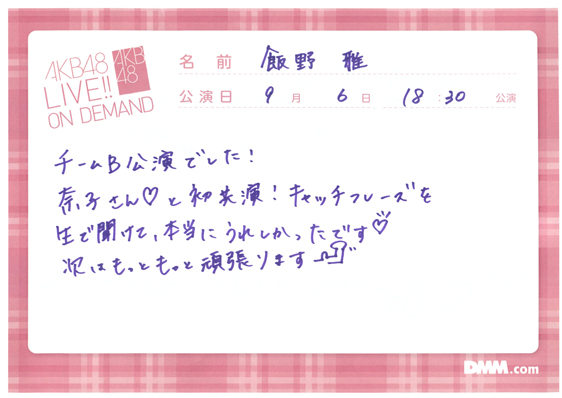 AKB48
LIVE!!
ON DEMAND
AKB
48
名前 飯野 雅
公演日 9月 6日 18:30 公演
チームB公演でした!
奈子さん♡と初共演!キャッチフレーズを
生で聞けて、本当にうれしかったです♡
次はもっともっと頑張ります
DMM.com